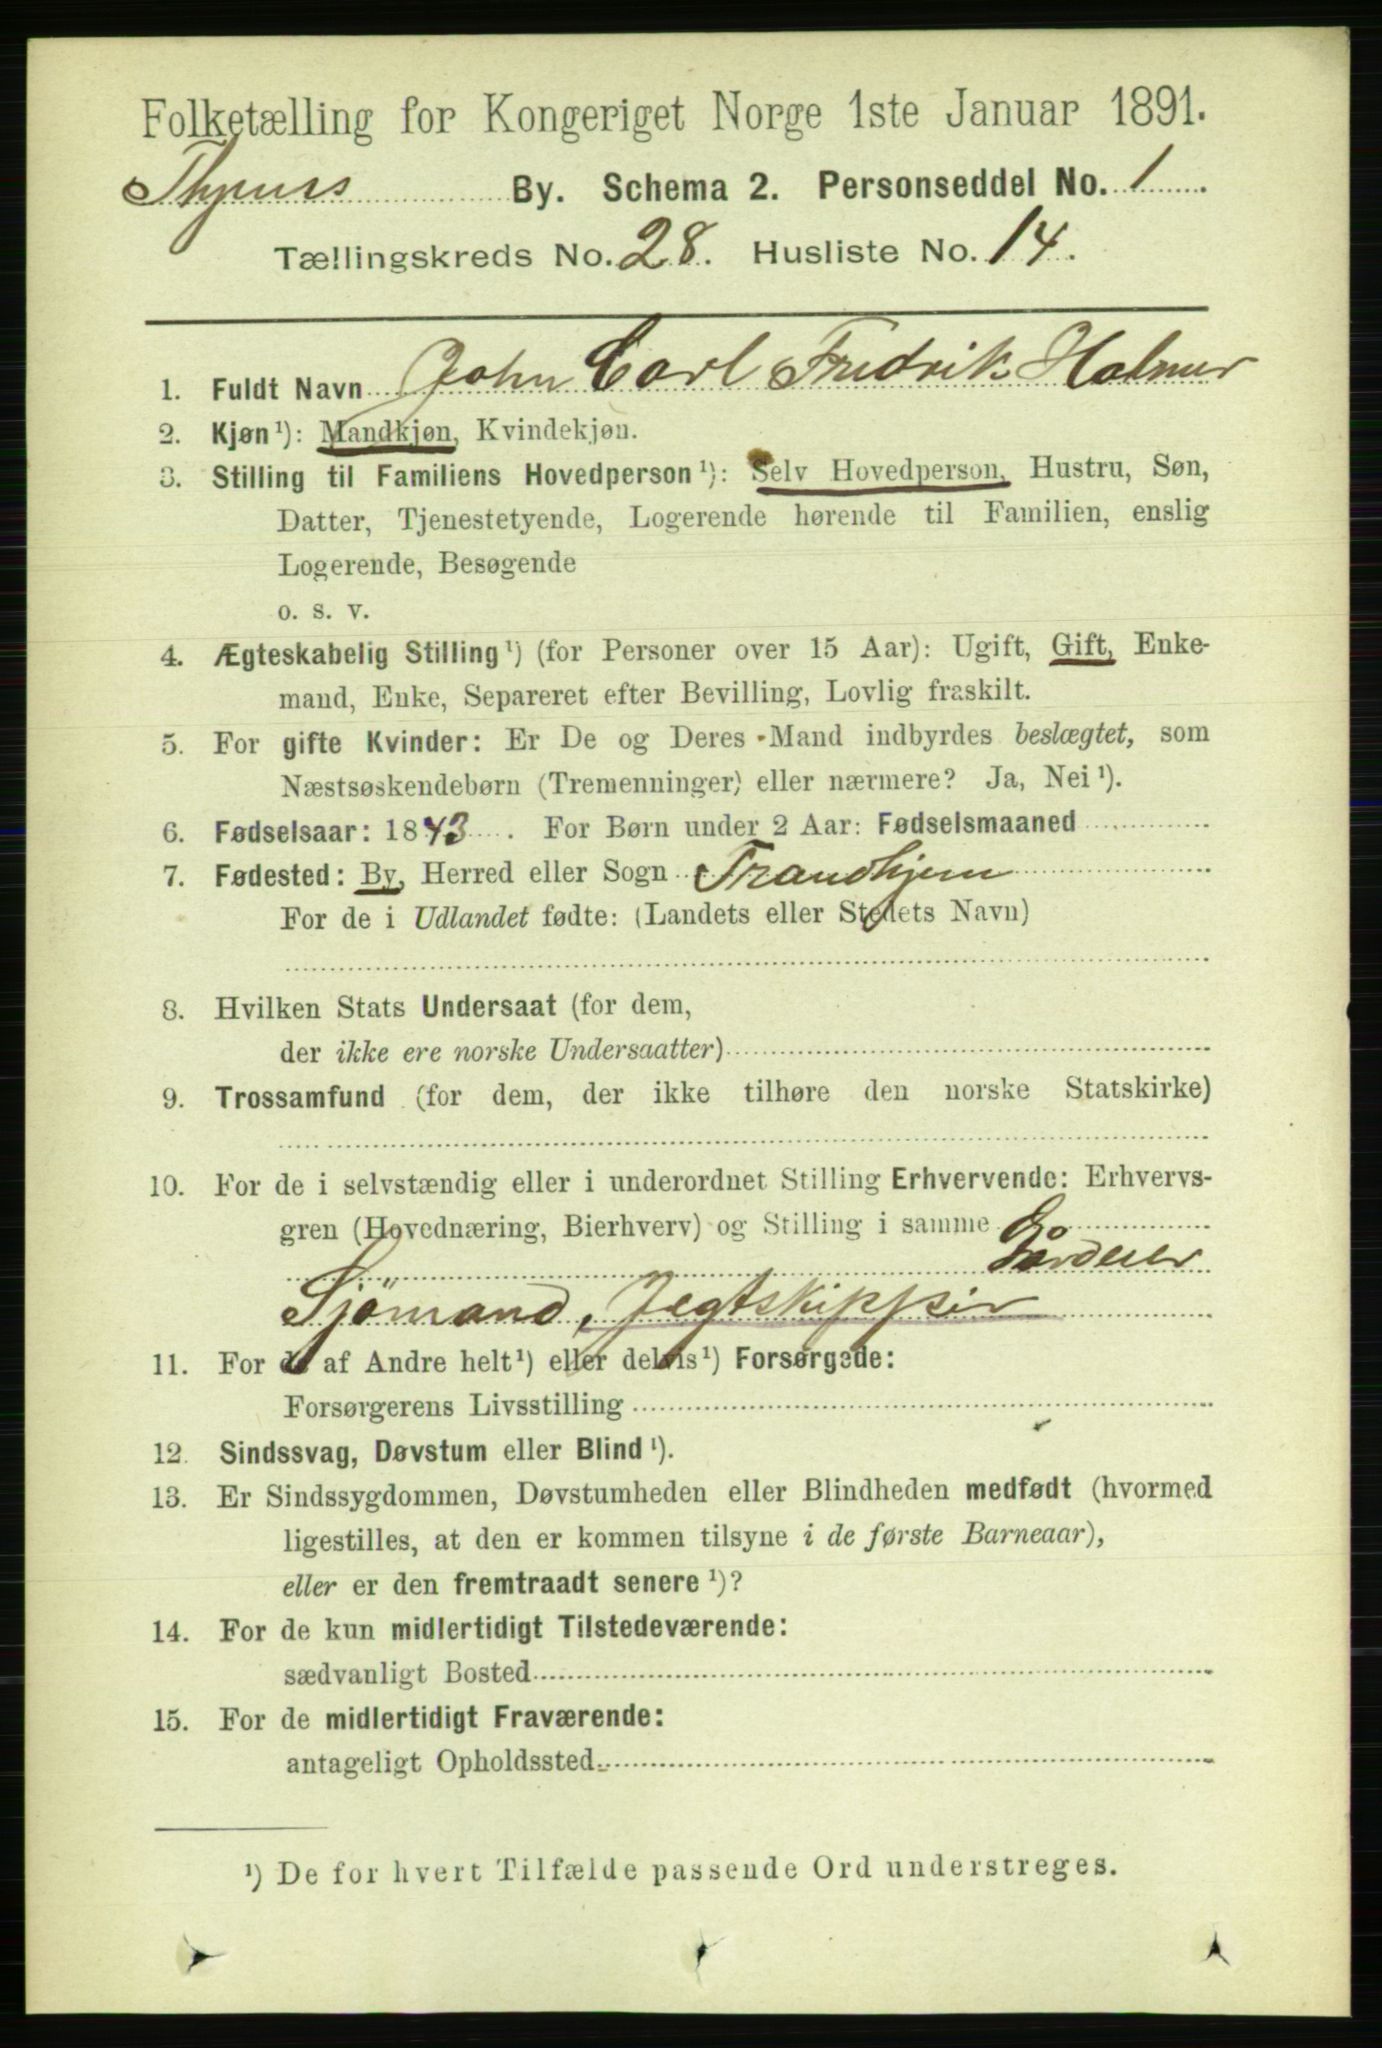 Folketælling for Kongeriget Norge 1ste Januar 1891.
By. Schema 2. Personseddel No. 1
Tællingskreds No. 28. Husliste No. 14.
1. Fuldt Navn John Carl Fredrik Holmer
2. Kjøn¹): Mandkjøn, Kvindekjøn.
3. Stilling til Familiens Hovedperson¹): Selv Hovedperson, Hustru, Søn,
Datter, Tjenestetyende, Logerende hørende til Familien, enslig
Logerende, Besøgende
o. s. v.
4. Ægteskabelig Stilling¹) (for Personer over 15 Aar): Ugift, Gift, Enke-
mand, Enke, Separeret efter Bevilling, Lovlig fraskilt.
5. For gifte Kvinder: Er De og Deres Mand indbyrdes beslægtet, som
Næstsøskendebørn (Tremenninger) eller nærmere? Ja, Nei¹).
6. Fødselsaar: 1843. For Børn under 2 Aar: Fødselsmaaned
7. Fødested: By, Herred eller Sogn Trandhjem
For de i Udlandet fødte: (Landets eller Stedets Navn)
8. Hvilken Stats Undersaat (for dem,
der ikke ere norske Undersaatter)
9. Trossamfund (for dem, der ikke tilhøre den norske Statskirke)
10. For de i selvstændig eller i underordnet Stilling Erhvervende: Erhvervs-
gren (Hovednæring, Bierhverv) og Stilling i samme
Gårdeier
Sjömand, Jegtskipper
11. For de af Andre helt¹) eller delvis¹) Forsørgede:
Forsørgerens Livsstilling
12. Sindssvag, Døvstum eller Blind¹).
13. Er Sindssygdommen, Døvstumheden eller Blindheden medfødt (hvormed
ligestilles, at den er kommen tilsyne i de første Barneaar),
eller er den fremtraadt senere¹)?
14. For de kun midlertidigt Tilstedeværende:
sædvanligt Bosted
15. For de midlertidigt Fraværende:
antageligt Opholdssted
¹) De for hvert Tilfælde passende Ord understreges.